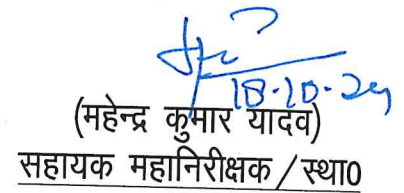 18-10-24
(महेन्द्र कुमार यादव)
सहायक महानिरीक्षक/स्था0